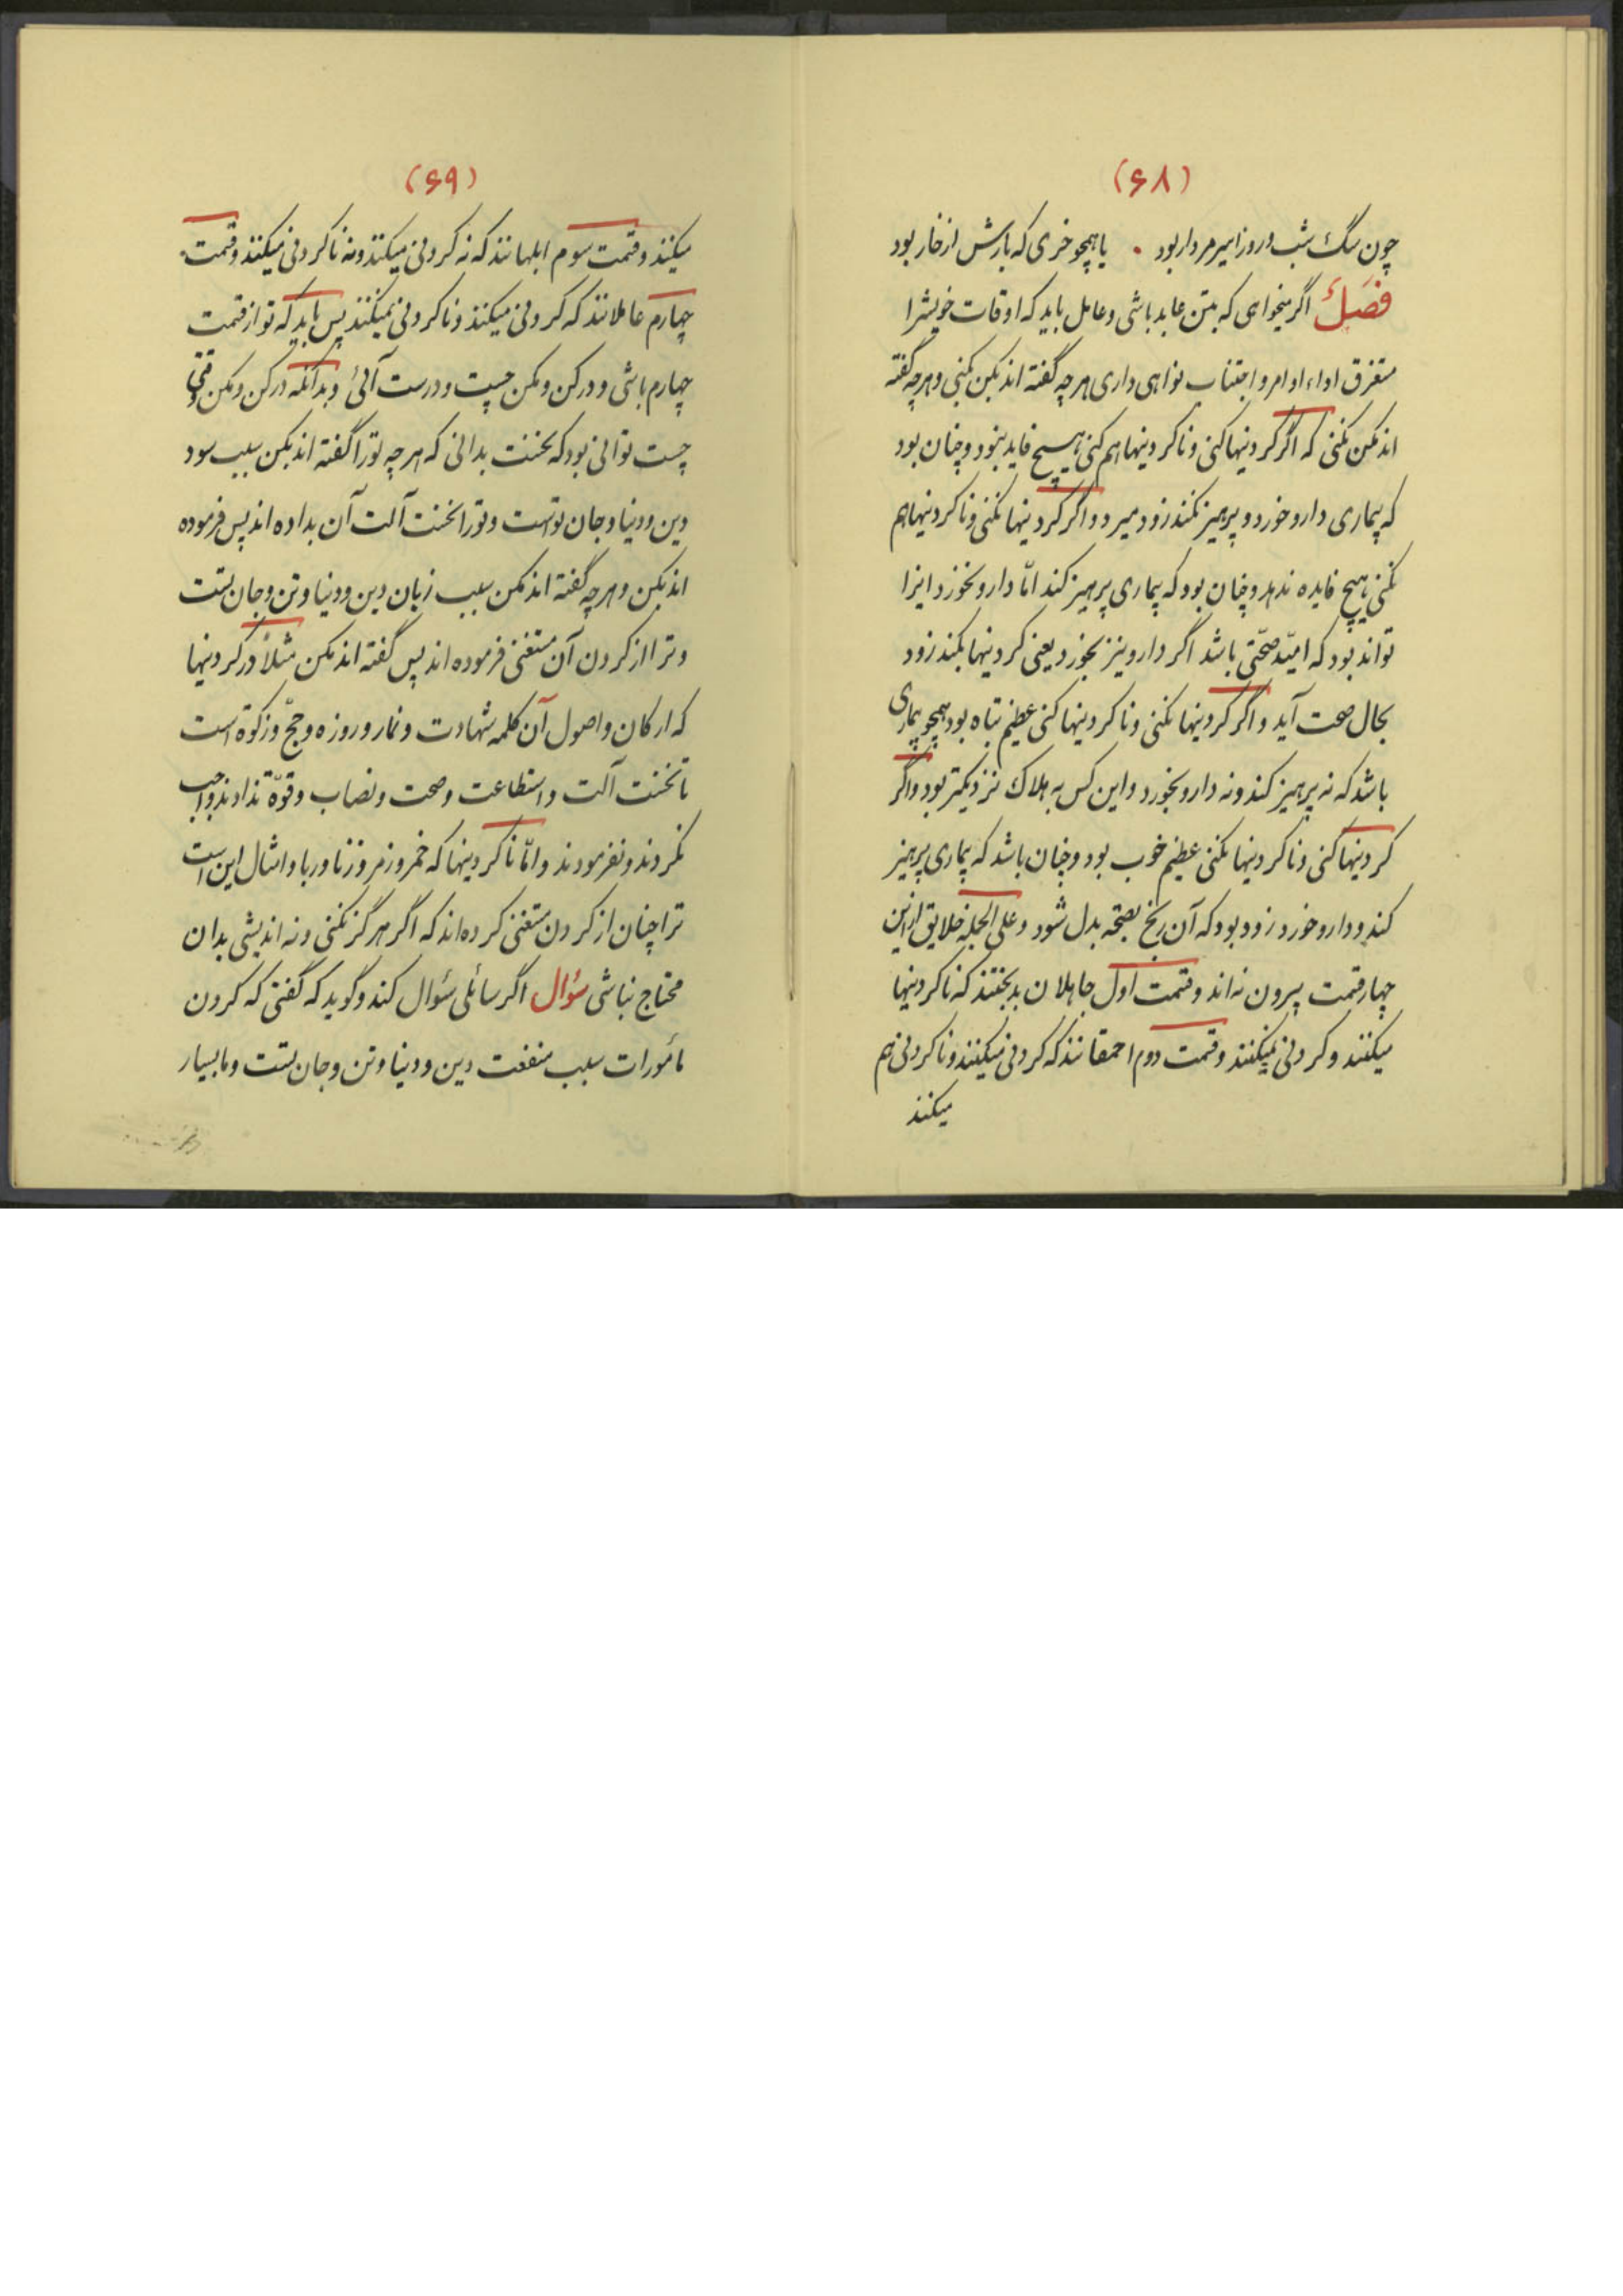 (۶۸)
چون سگ شب و روز اسیر مردار بود • یا همچو خری که بارش از خار بود
فصل اگر میخواهی که بتن عابد باشی و عامل باید که اوقات خویشرا
مستغرق اداء اوامر و اجتناب نواهی داری هرچه گفته اند بکن بکنی و هرچه گفته
اند مکن نکنی که اگر کردنیها کنی و ناکردنیها هم کنی هیچ فایده نبود و چنان بود
که بیماری دارو خورد و پرهیز نکند زود میرد و اگر کردنیها نکنی و ناکردنیها هم
نکنی هیچ فایده ندهد و چنان بود که بیماری پرهیز کند امّا دارو نخورد اینرا
تواند بود که امید صحّتی باشد اگر دارو نیز بخورد یعنی کردنیها بکند زود
بحال صحت آید و اگر کردنیها نکنی و ناکردنیها کنی عظیم تباه بود همچو بیماری
باشد که نه پرهیز کند و نه دارو بخورد و این کس به هلاک نزدیکتر بود و اگر
کردنیها کنی و ناکردنیها نکنی عظیم خوب بود و چنان باشد که بیماری پرهیز
کند و دارو خورد زود بود که آن رنج بصحّة بدل شود و علی الجمله خلایق ازین
چهار قسمت بیرون نه اند و قسمت اول جاهلان بدبختند که ناکردنیها
میکنند و کردنی نمیکنند و قسمت دوم احمقانند که کردنی میکنند و ناکردنی هم
میکنند
(۶۹)
میکنند و قسمت سوم ابلهانند که نه کردنی میکنند و نه ناکردنی میکنند و قسمت
چهارم عاملانند که کردنی میکنند و ناکردنی نمیکنند پس باید که تو از قسمت
چهارم باشی و در کن و مکن چست و درست آئی و بدانکه در کن و مکن وقتی
چست توانی بود که نخست بدانی که هرچه تو را گفته اند بکن سبب سود
دین و دنیا و جان تواست و تو را نخست آلت آن بداده اند پس فرموده
اند بکن و هرچه گفته اند مکن سبب زیان دین و دنیا و تن و جان تست
و ترا از کردن آن مستغنی فرموده اند پس گفته اند مکن مثلاً در کردنیها
که ارکان و اصول آن کلمه شهادت و نماز و روزه و حجّ و زکوة است
تا نخست آلت و استطاعت و صحت و نصاب و قوّة ندادند واجب
نکردند و نفرمودند و امّا ناکردنیها که خمر و زمر و زنا و ربا و امثال این است
ترا چنان از کردن مستغنی کرده‌اند که اگر هرگز نکنی و نه اندیشی بدان
محتاج نباشی سؤال اگر سائلی سؤال کند و گوید که گفتی که کردن
مأمورات سبب منفعت دین و دنیا و تن و جان تست و ما بسیار